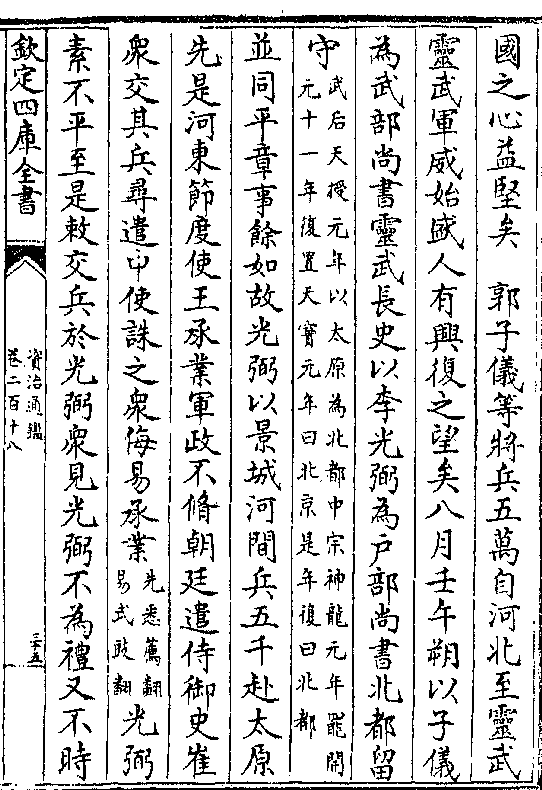 國之心益堅矣　郭子儀等將兵五萬自河北至靈武
靈武軍威始盛人有興復之望矣八月壬午朔以子儀
為武部尚書靈武長史以李光弼為戶部尚書北都留
守
武后天授元年以太原為北都中宗神龍元年罷開
元十一年復置天寶元年曰北京是年復曰北都
並同平章事餘如故光弼以景城河間兵五千赴太原
先是河東節度使王承業軍政不脩朝廷遣侍御史崔
衆交其兵尋遣中使誅之衆侮易承業
先悉薦翻
易弋豉翻
光弼
素不平至是敕交兵於光弼衆見光弼不為禮又不時
欽定四庫全書
資治通鑑
卷二百十八
三十五